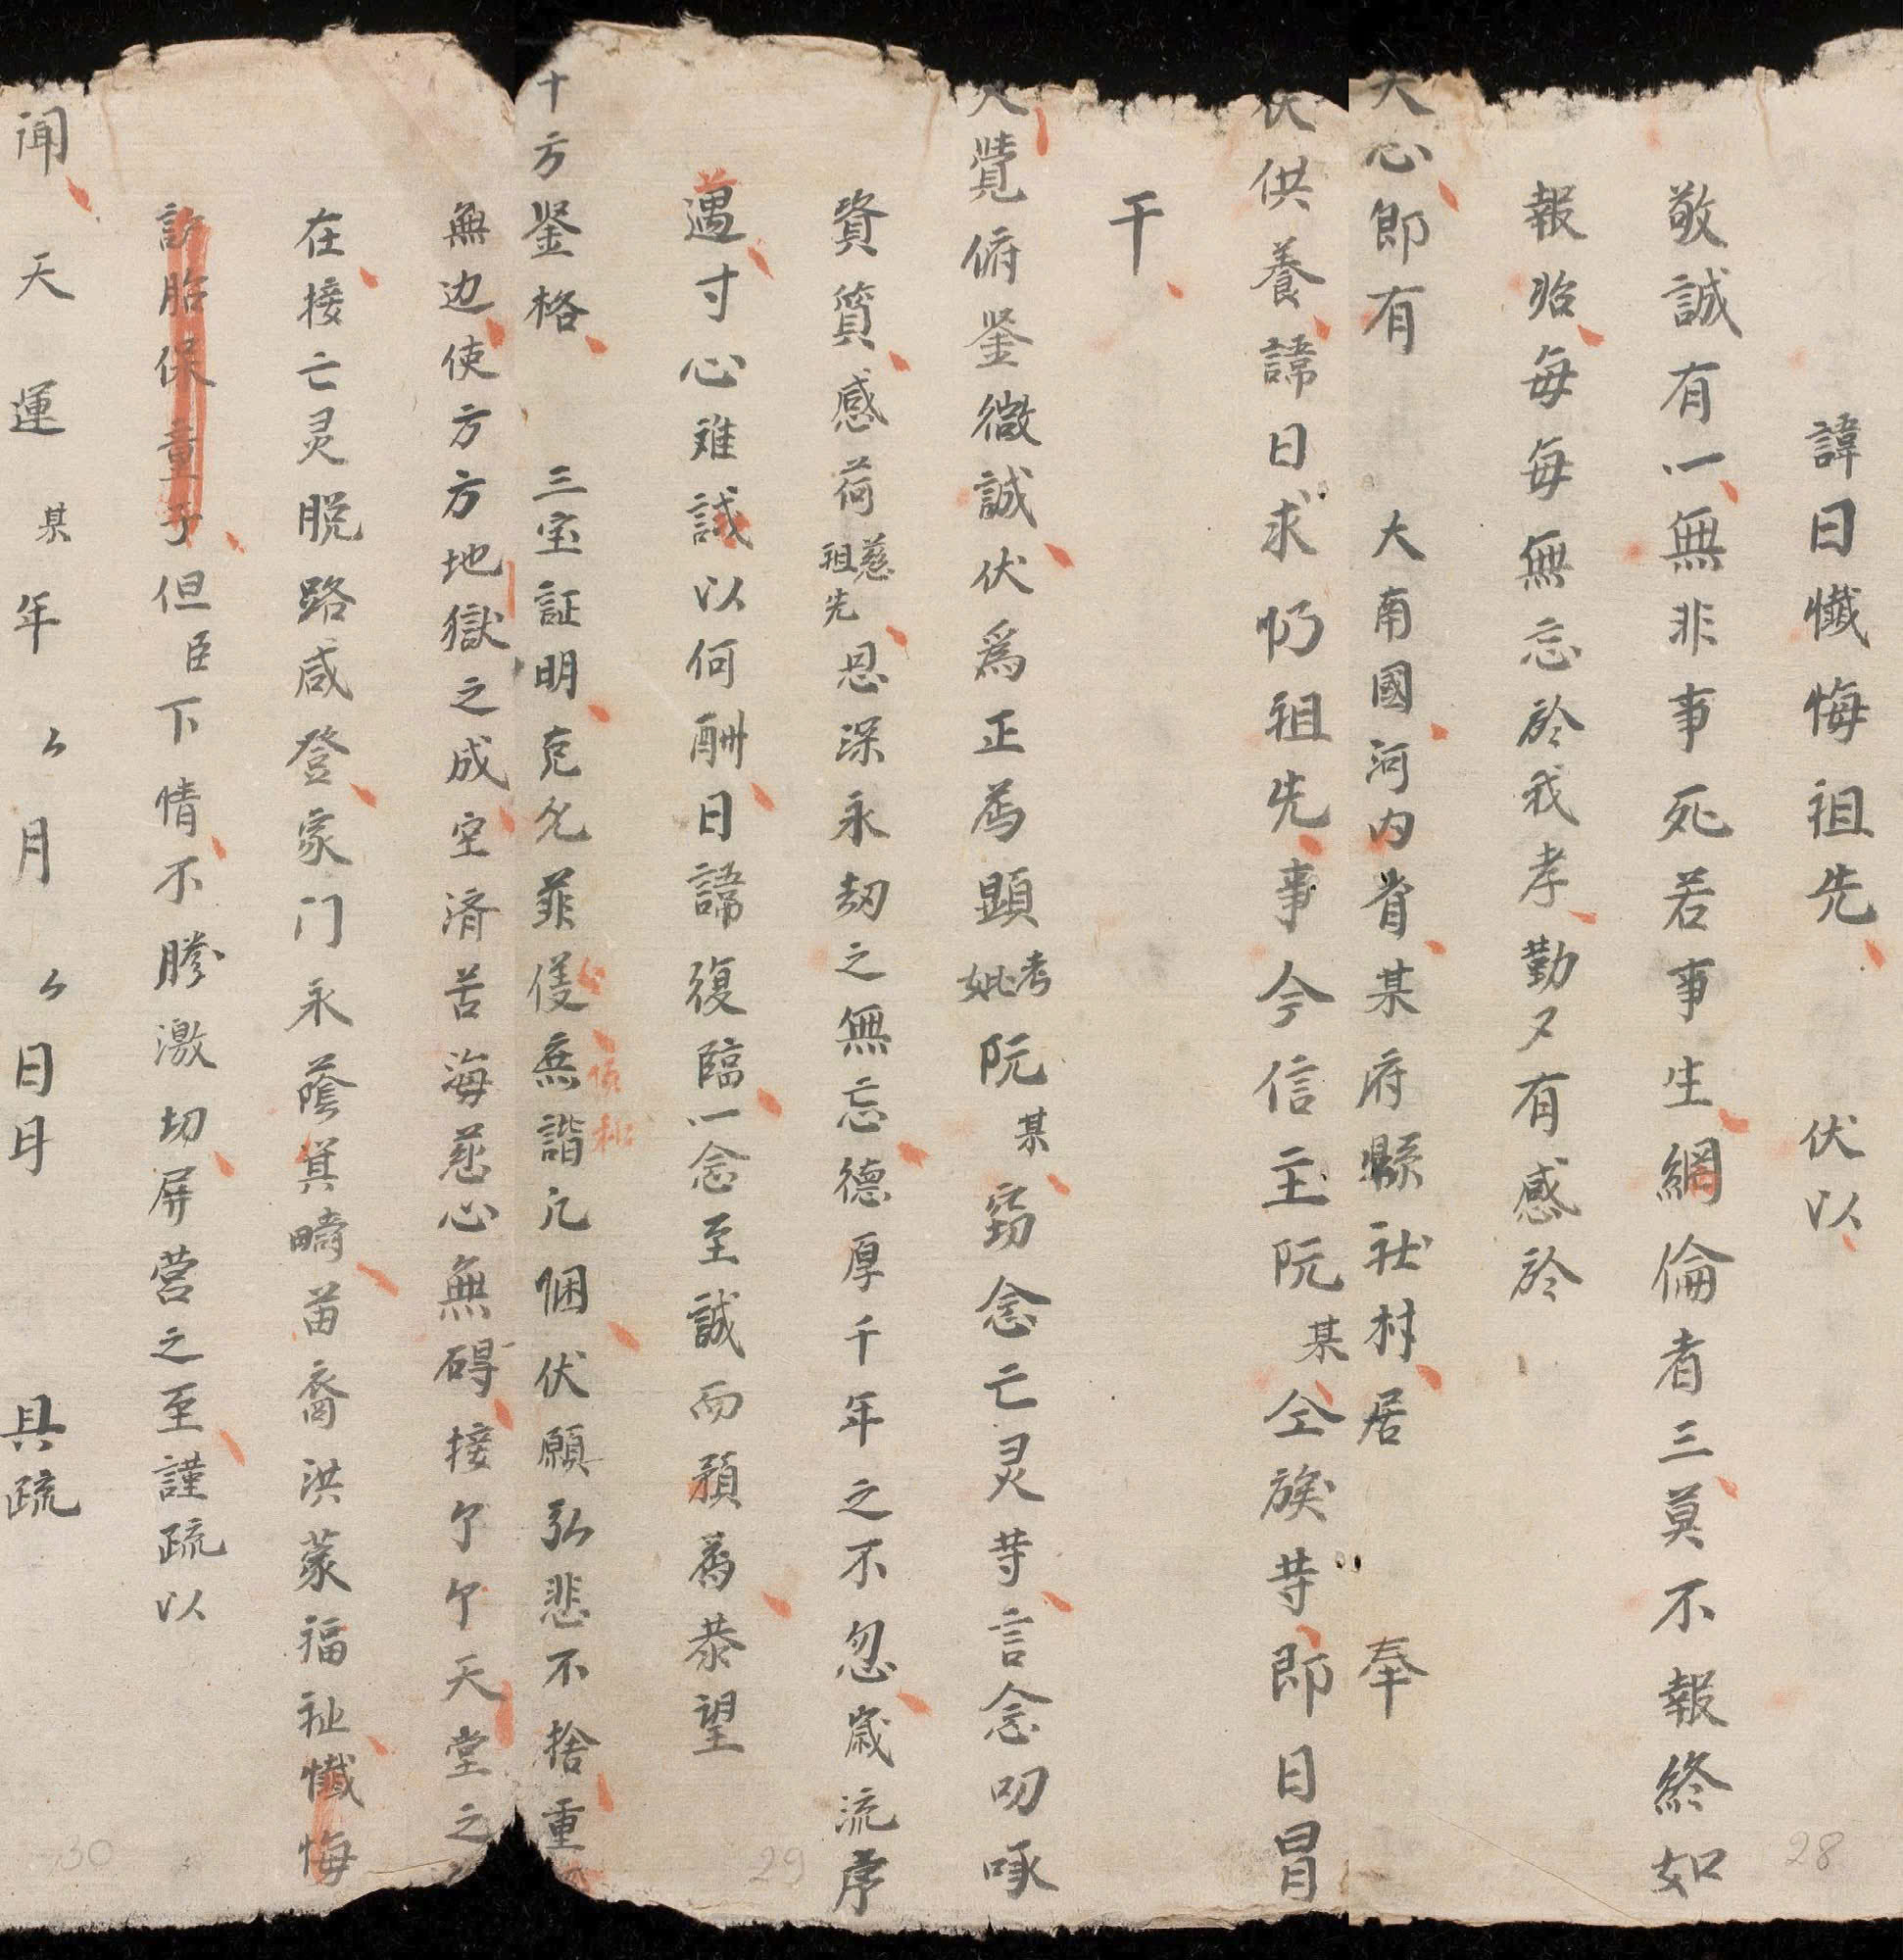 諱日懺悔祖先 伏以
敬誠有一無非事死若事生網倫者三莫不報終如
報始每每無忘於我孝勤夕有感於
天心卽有 大南國河内省某府縣社村居 奉
伏供養諦日求忉祖先事今信主阮某仝族䓁卽日冒
干
大覺俯鉴微誠伏爲正荐顯考妣阮某窃念亡灵䓁言念叨啄
資質感荷慈祖先恩深永劫之無忘德厚千年之不忽歲流序
遇寸心难誠以何酬日諦復臨一念至誠而預爲恭望
十方鉴格 三宝証明克允菲仪無諧凢悃伏願弘悲不捨重
無边使方方地獄之成空済苦海慈心無碍接个个天堂之
在接亡灵脱路咸登家门永蔭箕疇苗裔洪蒙福祉懺悔
訴胎保童子但臣下情不勝激切屏营之至謹疏以
闻 天運某年〻月〻日 具疏
30
29
28